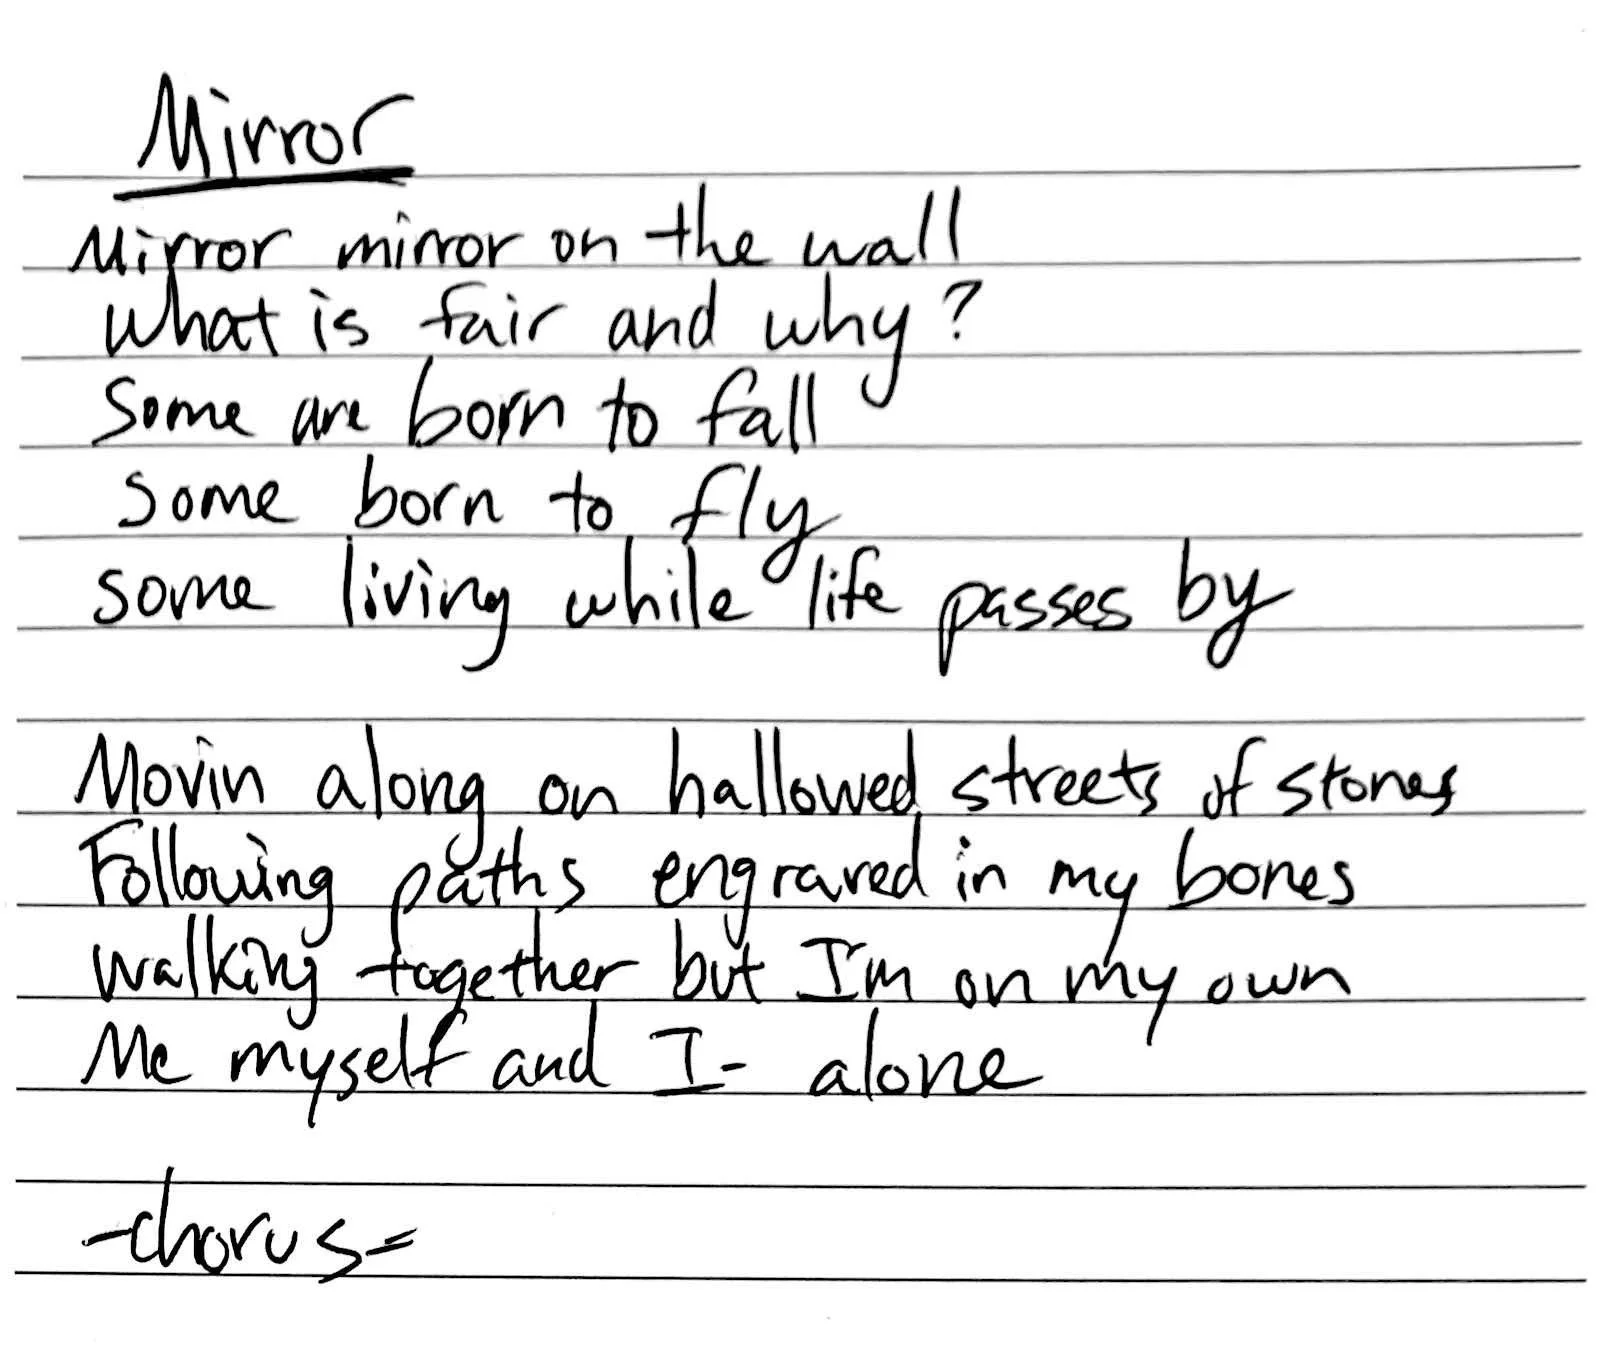 Mirror
Mirror mirror on the wall
What is fair and why?
Some are born to fall
Some born to fly
some living while life passes by
Movin along on hallowed streets of stones
Following paths engraved in my bones
walking together but I'm on my own
Me myself and I- alone
-chorus-